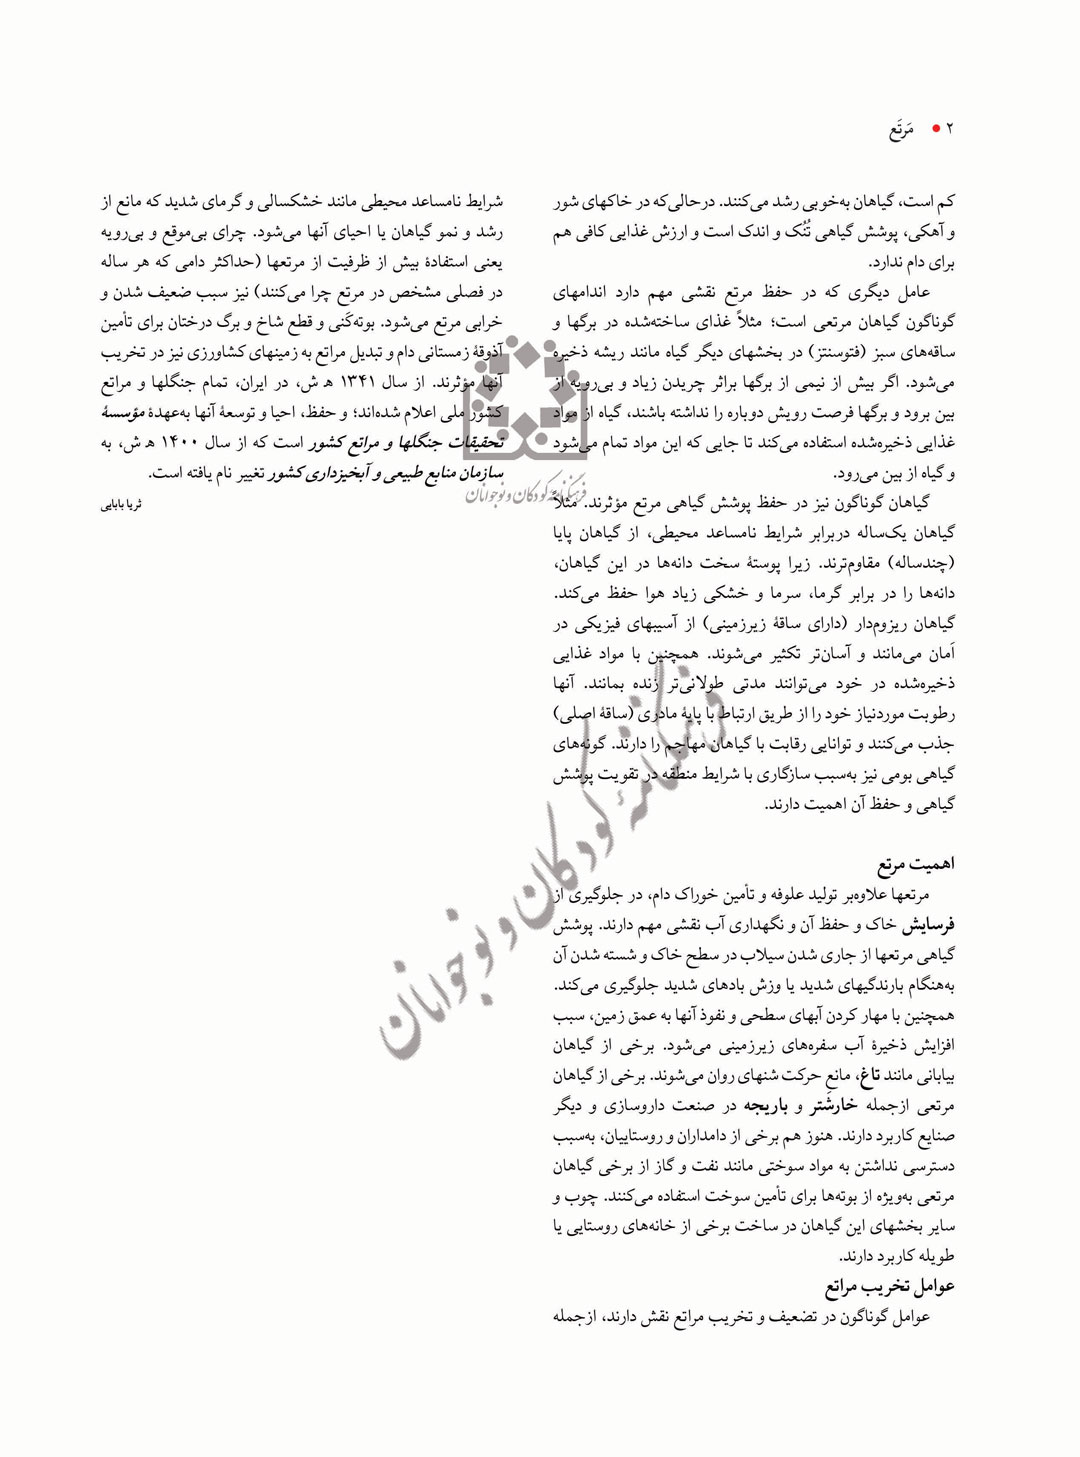 ۲ • مَرتَع
کم است، گیاهان به‌خوبی رشد می‌کنند. درحالی‌که در خاکهای شور
و آهکی، پوشش گیاهی تُنُک و اندک است و ارزش غذایی کافی هم
برای دام ندارد.
عامل دیگری که در حفظ مرتع نقشی مهم دارد اندامهای
گوناگون گیاهان مرتعی است؛ مثلاً غذای ساخته‌شده در برگها و
ساقه‌های سبز (فتوسنتز) در بخشهای دیگر گیاه مانند ریشه ذخیره
می‌شود. اگر بیش از نیمی از برگها براثر چریدن زیاد و بی‌رویه از
بین برود و برگها فرصت رویش دوباره را نداشته باشند، گیاه از مواد
غذایی ذخیره‌شده استفاده می‌کند تا جایی که این مواد تمام می‌شود
و گیاه از بین می‌رود.
گیاهان گوناگون نیز در حفظ پوشش گیاهی مرتع مؤثرند. مثلاً
گیاهان یک‌ساله دربرابر شرایط نامساعد محیطی، از گیاهان پایا
(چندساله) مقاوم‌ترند. زیرا پوستهٔ سخت دانه‌ها در این گیاهان،
دانه‌ها را در برابر گرما، سرما و خشکی زیاد هوا حفظ می‌کند.
گیاهان ریزوم‌دار (دارای ساقهٔ زیرزمینی) از آسیبهای فیزیکی در
اَمان می‌مانند و آسان‌تر تکثیر می‌شوند. همچنین با مواد غذایی
ذخیره‌شده در خود می‌توانند مدتی طولانی‌تر زنده بمانند. آنها
رطوبت موردنیاز خود را از طریق ارتباط با پایهٔ مادری (ساقهٔ اصلی)
جذب می‌کنند و توانایی رقابت با گیاهان مهاجم را دارند. گونه‌های
گیاهی بومی نیز به‌سبب سازگاری با شرایط منطقه در تقویت پوشش
گیاهی و حفظ آن اهمیت دارند.
اهمیت مرتع
مرتعها علاوه‌بر تولید علوفه و تأمین خوراک دام، در جلوگیری از
فرسایش خاک و حفظ آن و نگهداری آب نقشی مهم دارند. پوشش
گیاهی مرتعها از جاری شدن سیلاب در سطح خاک و شسته شدن آن
به‌هنگام بارندگیهای شدید یا وزش بادهای شدید جلوگیری می‌کند.
همچنین با مهار کردن آبهای سطحی و نفوذ آنها به عمق زمین، سبب
افزایش ذخیرهٔ آب سفره‌های زیرزمینی می‌شود. برخی از گیاهان
بیابانی مانند تاغ، مانعِ حرکت شنهای روان می‌شوند. برخی از گیاهان
مرتعی ازجمله خارشتر و باریجه در صنعت داروسازی و دیگر
صنایع کاربرد دارند. هنوز هم برخی از دامداران و روستاییان، به‌سبب
دسترسی نداشتن به مواد سوختی مانند نفت و گاز از برخی گیاهان
مرتعی به‌ویژه از بوته‌ها برای تأمین سوخت استفاده می‌کنند. چوب و
سایر بخشهای این گیاهان در ساخت برخی از خانه‌های روستایی یا
طویله کاربرد دارند.
عوامل تخریب مراتع
عوامل گوناگون در تضعیف و تخریب مراتع نقش دارند، ازجمله
شرایط نامساعد محیطی مانند خشکسالی و گرمای شدید که مانع از
رشد و نمو گیاهان یا احیای آنها می‌شود. چرای بی‌موقع و بی‌رویه
یعنی استفادهٔ بیش از ظرفیت از مرتعها (حداکثر دامی که هر ساله
در فصلی مشخص در مرتع چرا می‌کنند) نیز سبب ضعیف شدن و
خرابی مرتع می‌شود. بوته‌کَنی و قطع شاخ و برگ درختان برای تأمین
آذوقهٔ زمستانی دام و تبدیل مراتع به زمینهای کشاورزی نیز در تخریب
آنها مؤثرند. از سال ۱۳۴۱ ه‍ ش، در ایران، تمام جنگلها و مراتع
کشور ملی اعلام شده‌اند؛ و حفظ، احیا و توسعهٔ آنها به‌عهدهٔ مؤسسهٔ
تحقیقات جنگلها و مراتع کشور است که از سال ۱۴۰۰ ه‍ ش، به
سازمان منابع طبیعی و آبخیزداری کشور تغییر نام یافته است.
ثریا بابایی
فرهنگنامهٔ کودکان و نوجوانان
فرهنگنامهٔ کودکان و نوجوانان